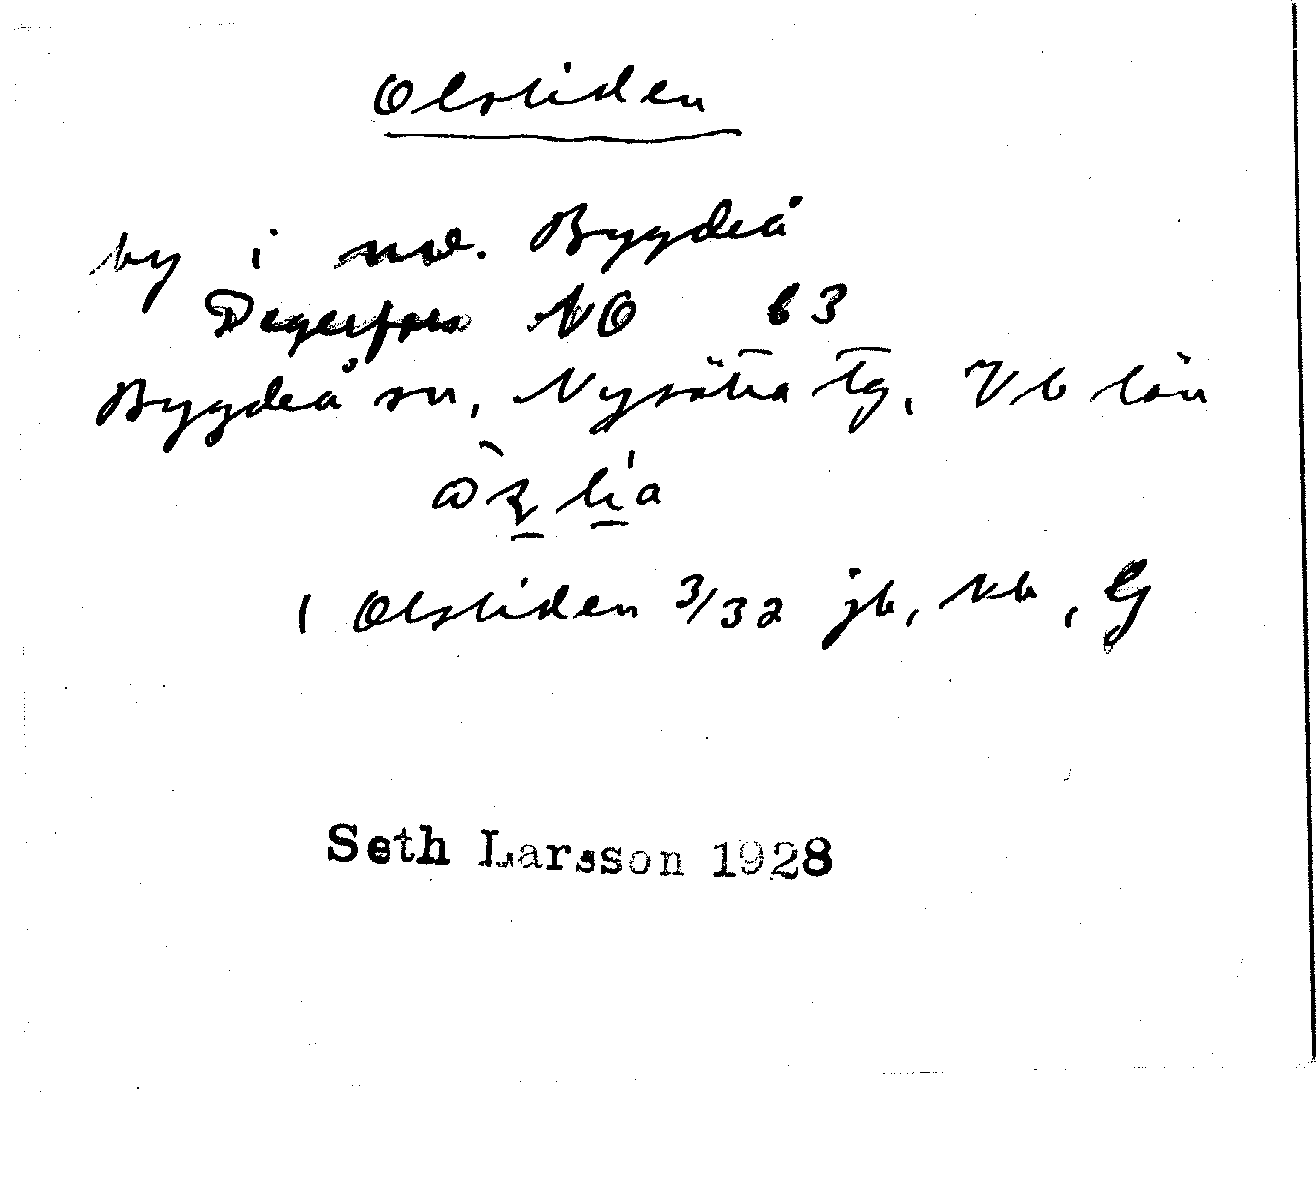 Olsliden
by i nv. Bygdeå
Degerfors NO b3
Bygdeå sn, Nysätra tg, Vb län
1 Olsliden 3/32 jb, kb, G
Seth Larsson 1928